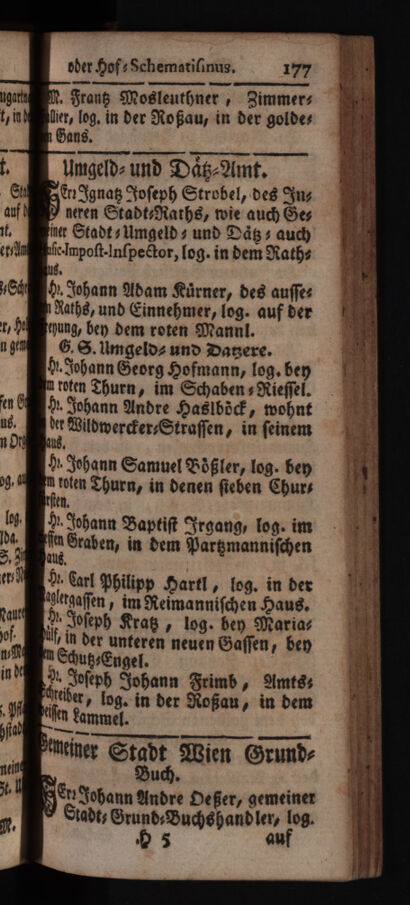 oder Hof-Schematismus. 177
M. Frantz Mosleuthner, Zimmer-
allier, log. in der Roßau, in der golde-
n Gans.
Umgeld- und Dätz-Amt.
HErr Ignatz Joseph Strobel, des In-
neren Stadt-Raths, wie auch Ge-
einer Stadt-Umgeld- und Dätz- auch
usic-Impost-Inspector, log. in dem Rath-
aus.
Hr. Johann Adam Kürner, des ausse-
n Raths, und Einnehmer, log. auf der
reyung, bey dem roten Mannl.
G. S. Umgeld- und Datzere.
Hr. Johann Georg Hofmann, log. bey
m roten Thurn, im Schaben-Riessel.
Hr. Johann Andre Haslböck, wohnt
der Wildwercker-Strassen, in seinem
aus.
Hr. Johann Samuel Bößler, log. bey
m roten Thurn, in denen sieben Chur-
ürsten.
Hr. Johann Baptist Irgang, log. im
essen Graben, in dem Partzmannischen
aus.
Hr. Carl Philipp Hartl, log. in der
aglergassen, im Reimannischen Haus.
Hr. Joseph Kratz, log. bey Maria-
ülf, in der unteren neuen Gassen, bey
em Schutz-Engel.
Hr. Joseph Johann Frimb, Amts-
schreiber, log. in der Roßau, in dem
eissen Lammel.
Gemeiner Stadt Wien Grund-
Buch.
HErr Johann Andre Oeßer, gemeiner
Stadt-Grund-Buchshandler, log.
H 5 auf